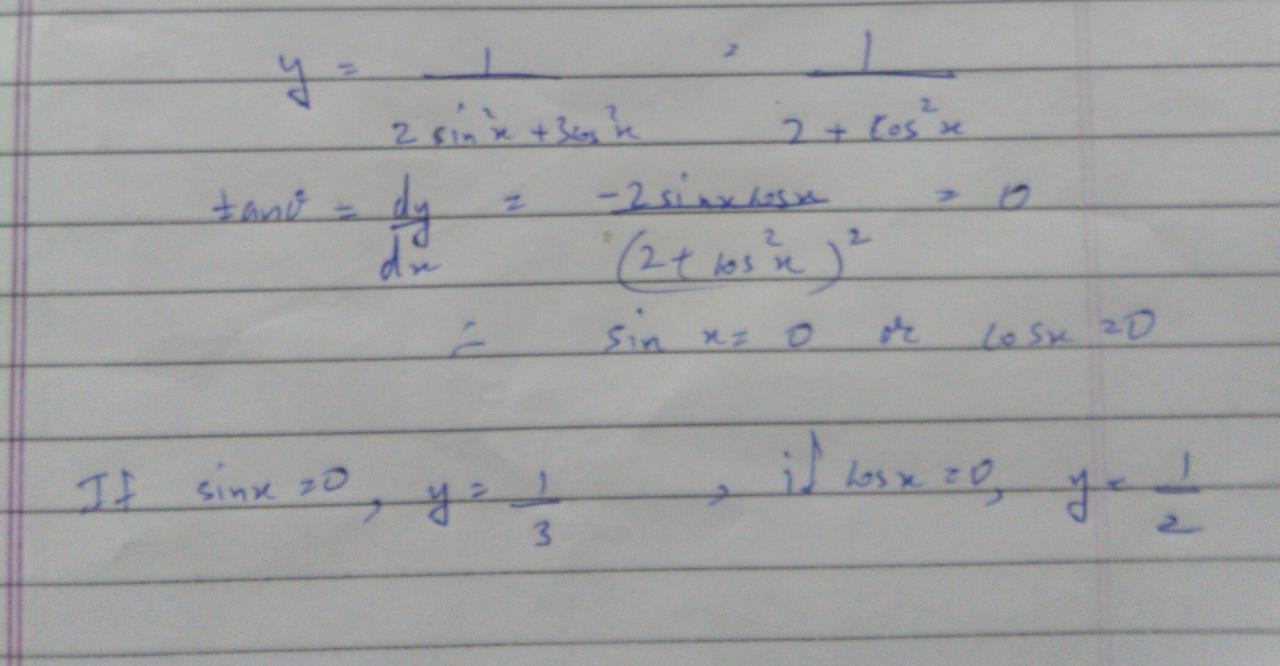 y = 1 / 2 sin²x + 3cos²x = 1 / 2 + cos²x
tanθ = dy/dx = -2 sinx cosx / (2 + cos²x)² = 0
= sin x = 0 or cosx = 0
If sinx = 0, y = 1/3 , if cosx = 0, y = 1/2